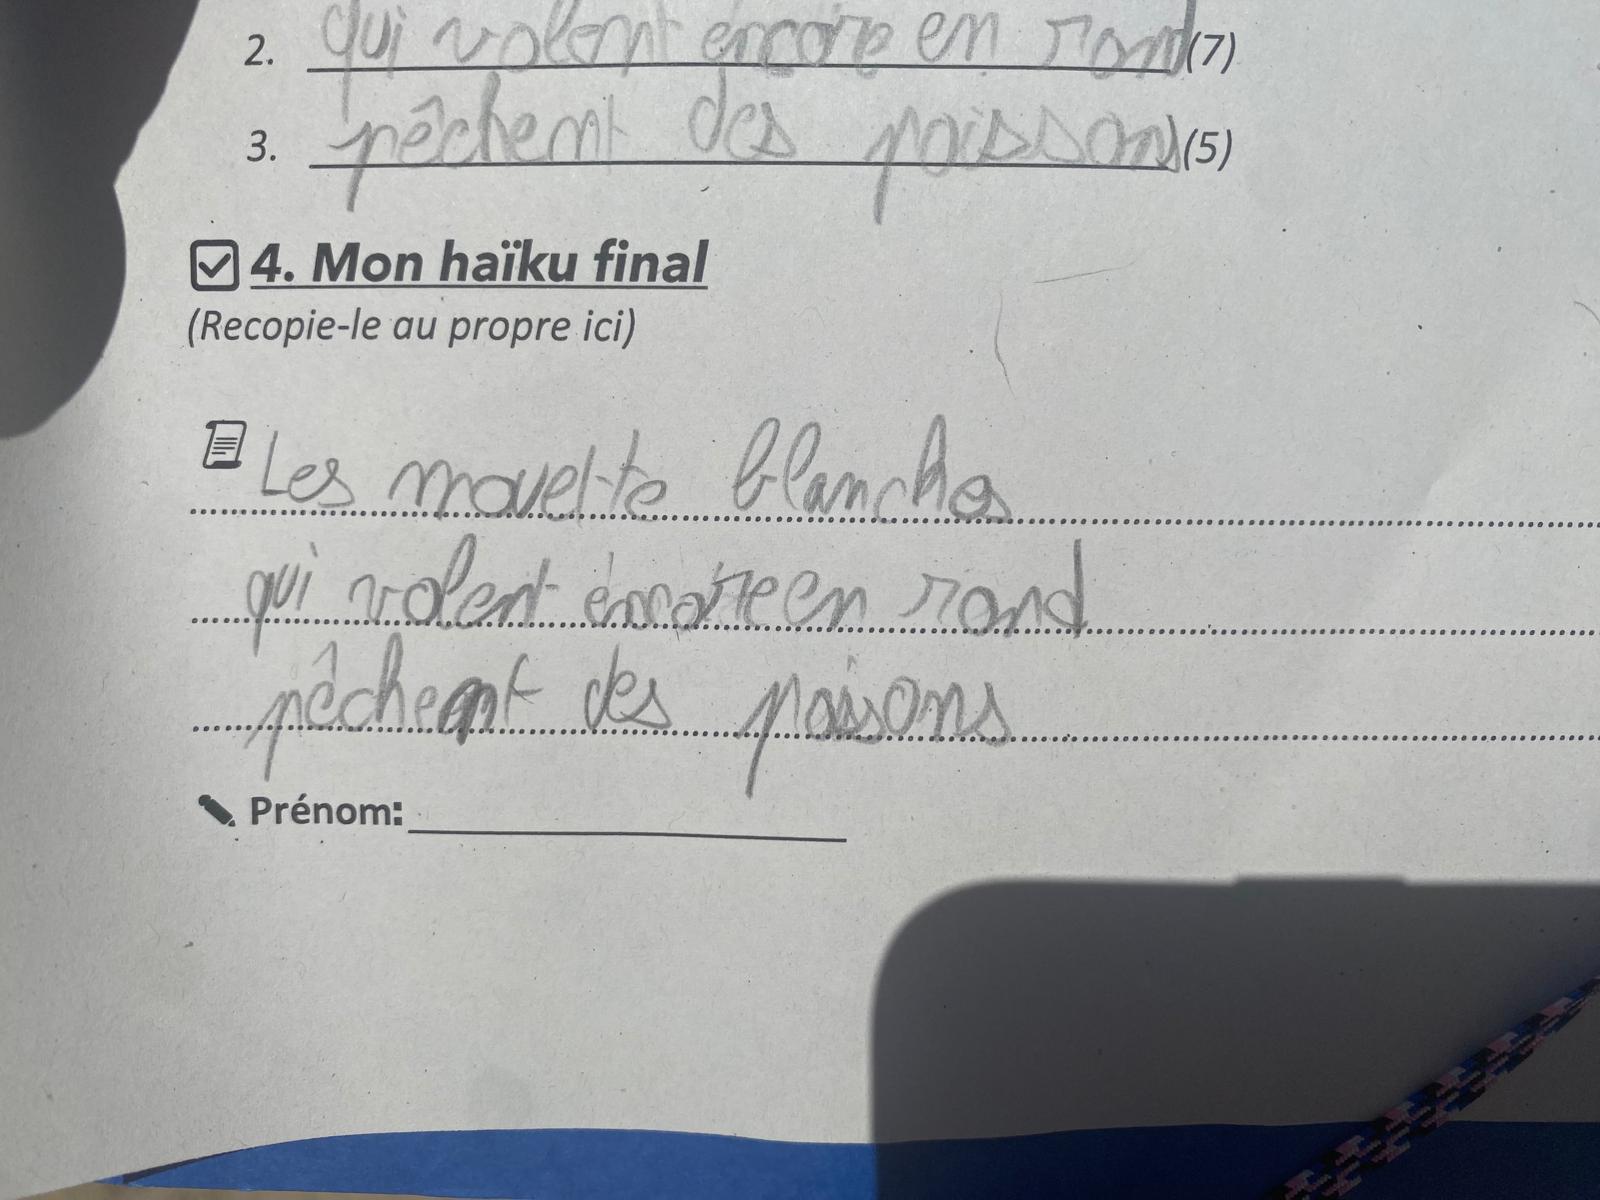 2. qui volent éncore en rond (7)
3. pêchent des poissons (5)
4. Mon haïku final
(Recopie-le au propre ici)
Les mouette blanches
qui volent éncore en rond
pêchent des poisons
Prénom: